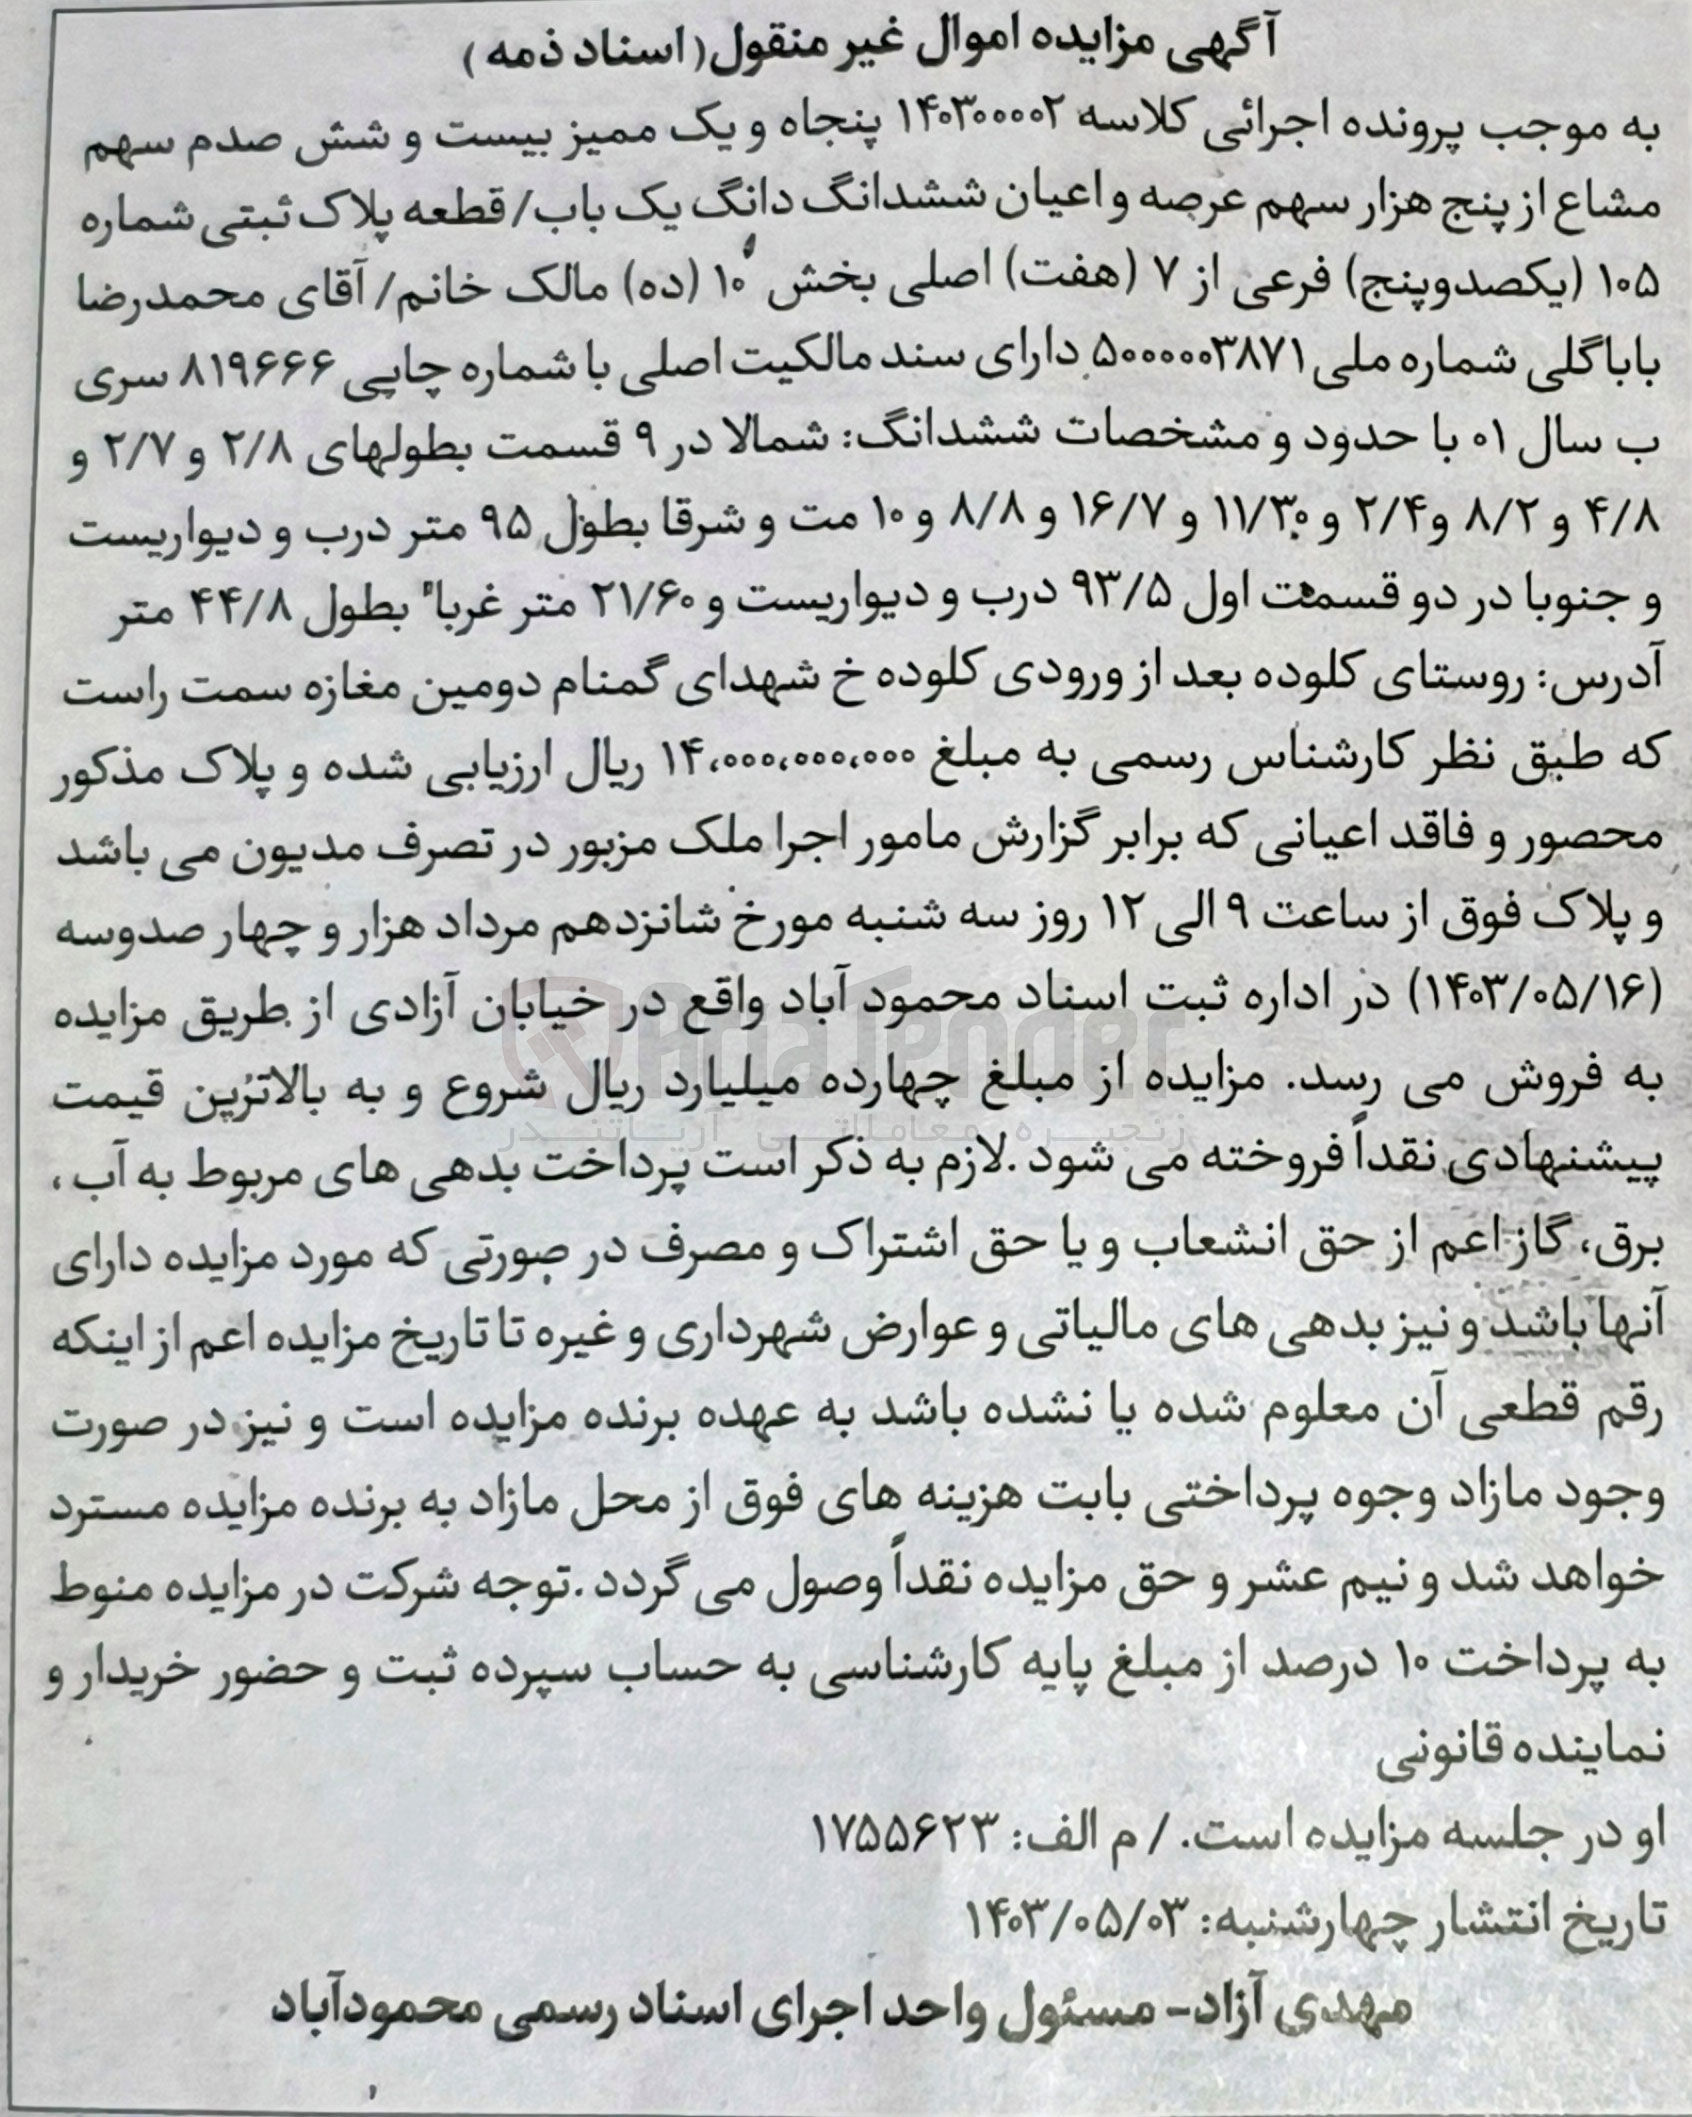 آگهی مزایده اموال غیر منقول (اسناد ذمه)
به موجب پرونده اجرائی کلاسه ۱۴۰۳۰۰۰۰۲ پنجاه و یک ممیز بیست و شش صدم سهم
مشاع از پنج هزار سهم عرصه و اعیان ششدانگ دانگ یک باب/ قطعه پلاک ثبتی شماره
۱۰۵ (یکصدوپنج) فرعی از ۷ (هفت) اصلی بخش ۱۰ (ده) مالک خانم/ آقای محمدرضا
باباگلی شماره ملی ۵۰۰۰۰۰۳۸۷۱ دارای سند مالکیت اصلی با شماره چاپی ۸۱۹۶۶۶ سری
ب سال ۰۱ با حدود و مشخصات ششدانگ: شمالا در ۹ قسمت بطولهای ۲/۸ و ۲/۷ و
۴/۸ و ۸/۲ و ۲/۴ و ۱۱/۳۰ و ۱۶/۷ و ۸/۸ و ۱۰ مت و شرقا بطول ۹۵ متر درب و دیواریست
و جنوبا در دو قسمت اول ۹۳/۵ درب و دیواریست و ۲۱/۶۰ متر غربا" بطول ۴۴/۸ متر
آدرس: روستای کلوده بعد از ورودی کلوده خ شهدای گمنام دومین مغازه سمت راست
که طبق نظر کارشناس رسمی به مبلغ ۱۴،۰۰۰،۰۰۰،۰۰۰ ریال ارزیابی شده و پلاک مذکور
محصور و فاقد اعیانی که برابر گزارش مامور اجرا ملک مزبور در تصرف مدیون می باشد
و پلاک فوق از ساعت ۹ الی ۱۲ روز سه شنبه مورخ شانزدهم مرداد هزار و چهار صدوسه
(۱۴۰۳/۰۵/۱۶) در اداره ثبت اسناد محمود آباد واقع در خیابان آزادی از طریق مزایده
به فروش می رسد. مزایده از مبلغ چهارده میلیارد ریال شروع و به بالاترین قیمت
پیشنهادی نقداً فروخته می شود .لازم به ذکر است پرداخت بدهی های مربوط به آب،
برق، گاز اعم از حق انشعاب و یا حق اشتراک و مصرف در صورتی که مورد مزایده دارای
آنها باشد و نیز بدهی های مالیاتی و عوارض شهرداری و غیره تا تاریخ مزایده اعم از اینکه
رقم قطعی آن معلوم شده یا نشده باشد به عهده برنده مزایده است و نیز در صورت
وجود مازاد وجوه پرداختی بابت هزینه های فوق از محل مازاد به برنده مزایده مسترد
خواهد شد و نیم عشر و حق مزایده نقداً وصول می گردد .توجه شرکت در مزایده منوط
به پرداخت ۱۰ درصد از مبلغ پایه کارشناسی به حساب سپرده ثبت و حضور خریدار و
نماینده قانونی
او در جلسه مزایده است. / م الف: ۱۷۵۵۶۲۳
تاریخ انتشار چهارشنبه: ۱۴۰۳/۰۵/۰۳
مهدی آزاد- مسئول واحد اجرای اسناد رسمی محمودآباد
AriaTender
زنجیره معاملاتی آریاتندر